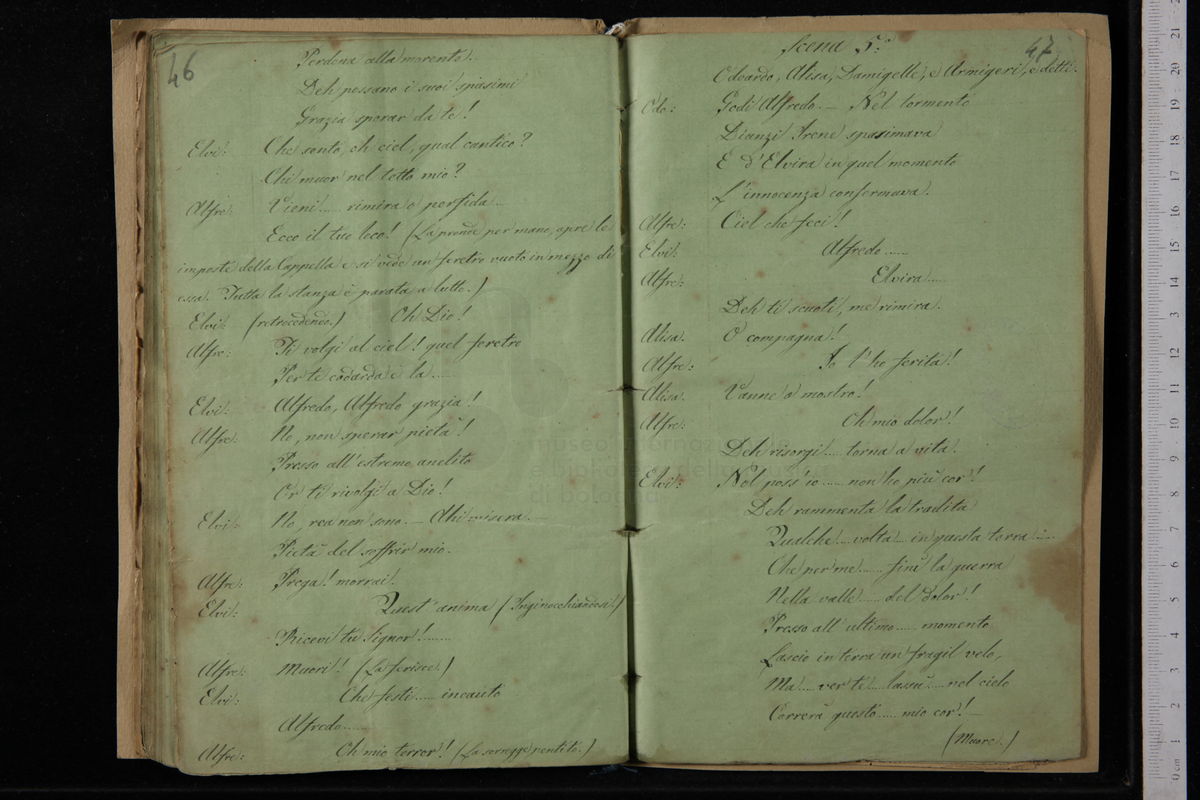 46
Perdona alla morente.
Deh possano i suoi spasimi
Grazia sperar da te!
Elvi: Che sento, oh ciel, qual cantico?
Chi muor nel tetto mio?
Alfre: Vieni..... rimira o perfida
Ecco il tuo loco! (La prende per mano, apre le
imposte della Cappella e si vede un feretro vuoto in mezzo di
essa. Tutta la stanza è parata a lutto.)
Elvi: (retrocedendo.) Oh Dio!
Alfre: Ti volgi al ciel! quel feretro
Per te codarda è là.....
Elvi: Alfredo, Alfredo grazia!
Alfre: No, non sperar pietà!
Presso all'estremo anelito
Or ti rivolgi a Dio!
Elvi: No, rea non sono. — Ahi misera —
Pietà del soffrir mio.
Alfre: Prega! morrai!
Elvi: Quest'anima (Inginocchiandosi.)
Ricevi tu Signor!......
Alfre: Muori!! (La ferisce.)
Elvi: Che festi..... incauto
Alfredo.....
Alfre: Oh mio terror! (La sorregge pentito.)
47
Scena 5.a
Odoardo, Alisa, Damigelle, e Armigeri, e detti.
Odo: Godi Alfredo. — Nel tormento
Dianzi Irene spasimava
E d'Elvira in quel momento
L'innocenza confermava.
Alfre: Ciel che feci!
Elvi: Alfredo.....
Alfre: Elvira.....
Deh ti scuoti, me rimira.
Alisa. O compagna!
Alfre: Io l'ho ferita!
Alisa. Vanne o mostro!
Alfre: Oh mio dolor!
Deh risorgi.... torna a vita.
Elvi: Nol poss'io..... non ho più cor!
Deh rammenta la tradita
Qualche... volta... in questa terra....
Che per me..... finì la guerra
Nella valle..... del dolor!
Presso all'ultimo..... momento
Lascio in terra un fragil velo,
Ma.... ver te.... lassù.... nel cielo
Correrà questo.... mio cor!
(Muore.)
museo internazionale
e biblioteca della musica
di bologna